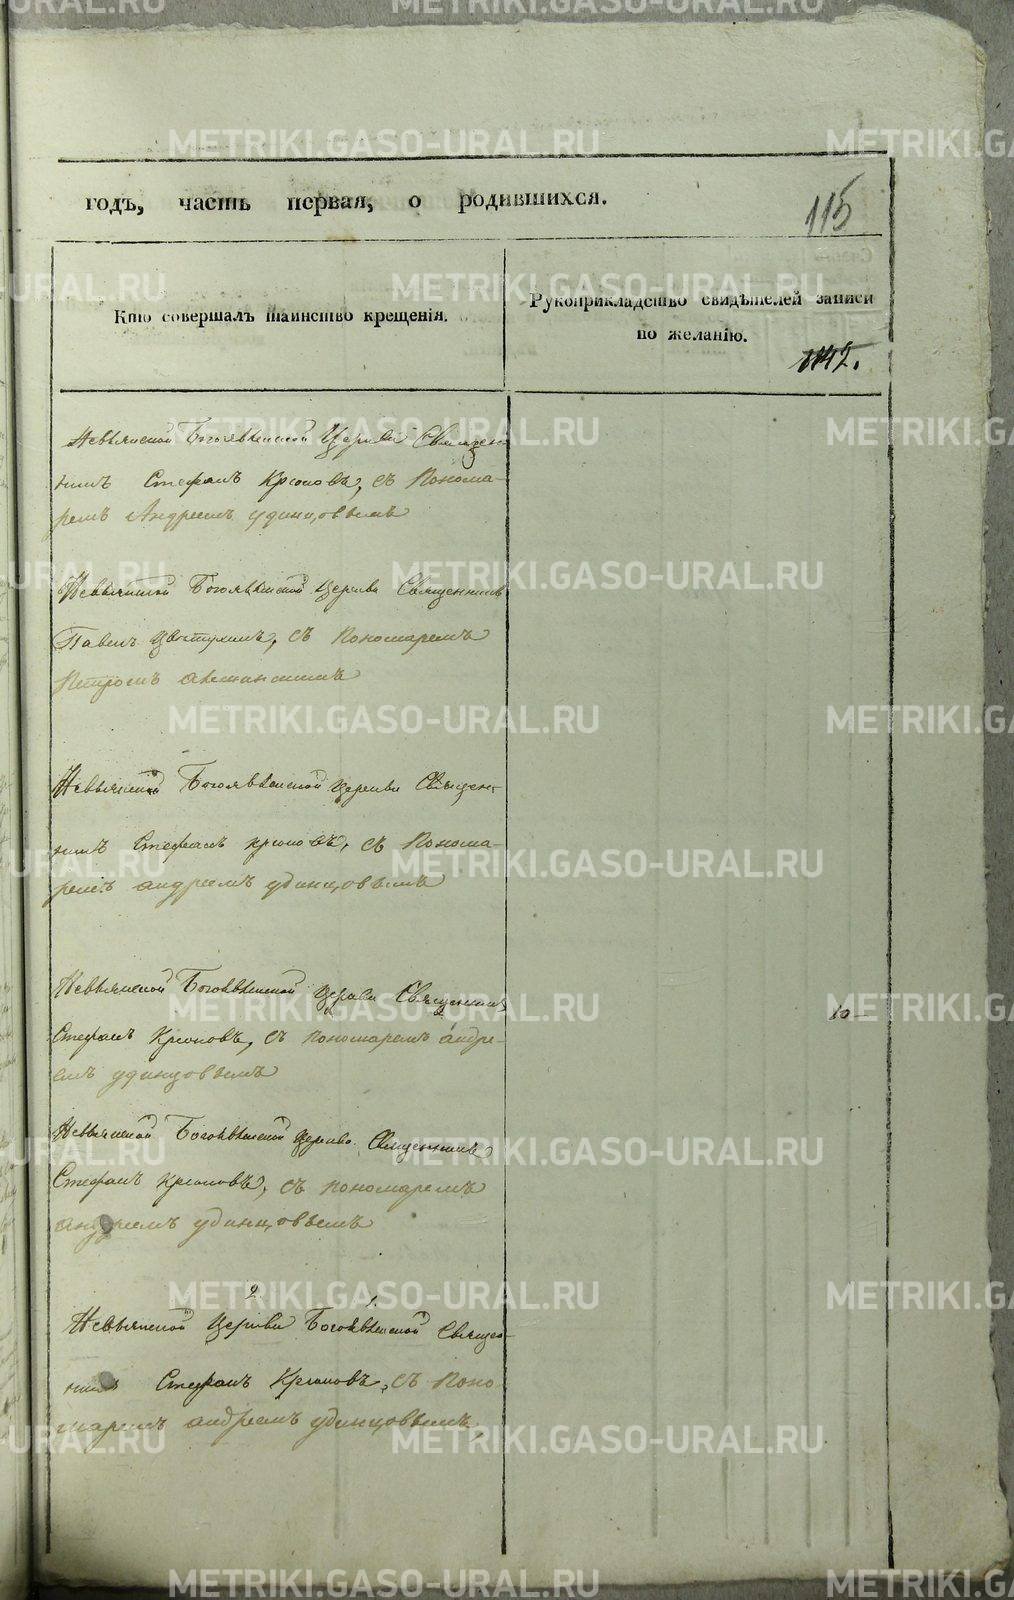 годъ, часть первая, о родившихся.
115
Кто совершалъ таинство крещенія.
Рукоприкладство свидѣтелей записи
по желанію.
1142.
Невьянской Богоявленской Церкви Священ
никъ Стефанъ Крюковъ, съ Понома-
ремъ Андреемъ удинцовымъ
Невьянской Богоявленской Церкви Священникъ
Павелъ Цвѣтухинъ, съ пономаремъ
Петромъ
Невьянской Богоявленской Церкви Священ-
никъ Стефанъ Крюковъ, съ Понома-
ремъ андреемъ удинцовымъ
Невьянской Богоявленской Церкви Священникъ
Стефанъ Крюковъ, съ пономаремъ андре-
емъ удинцовымъ
10-
Невьянской Богоявленской Церкви Священникъ
Стефанъ Крюковъ, съ пономаремъ
андреемъ удинцовымъ
2 1
Невьянской Церкви Богоявленской Священ-
никъ Стефанъ Крюковъ, съ Поно-
маремъ андреемъ удинцовымъ
METRIKI.GASO-URAL.RU